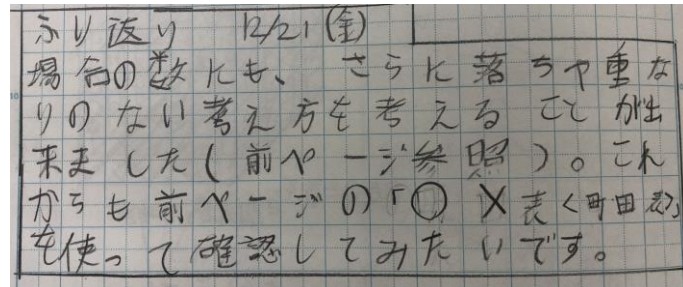 ふり返り 12/21(金)
場合の数にも、 さらに落ちや重な
りのない考え方を考えることが出
来ました(前ページ参照)。これ
からも前ページの「○×表<町田表>」
を使って確認してみたいです。